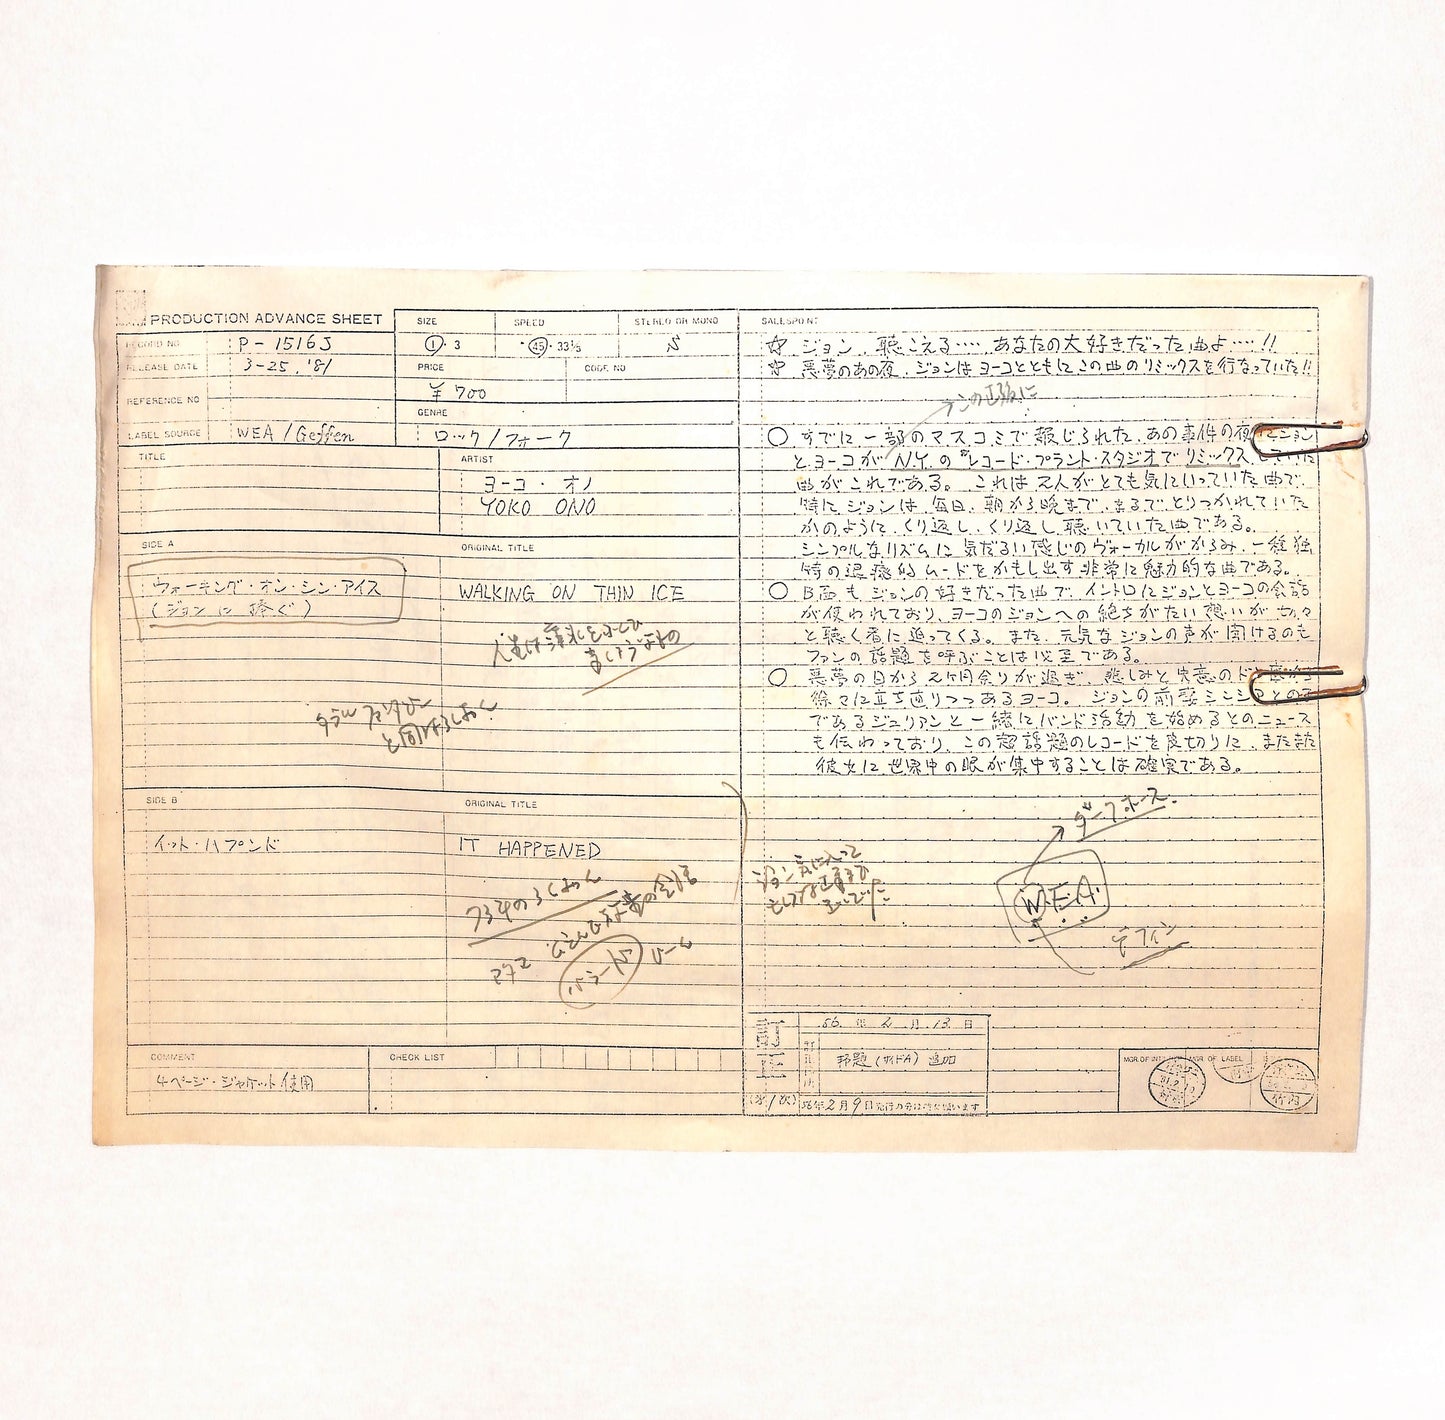 PRODUCTION ADVANCE SHEET
RECORD NO P-1516J
RELEASE DATE 3-25, '81
REFERENCE NO
LABEL SOURCE WEA/Geffen
SIZE SPEED STEREO OR MONO
① · 3 ㊺ · 33⅓ S
PRICE CODE NO
¥ 700
GENRE
ロック/フォーク
TITLE ARTIST
ヨーコ・オノ
YOKO ONO
SIDE A ORIGINAL TITLE
ウォーキング・オン・シン・アイス WALKING ON THIN ICE
(ジョンに捧ぐ)
人生は薄氷を
SIDE B ORIGINAL TITLE
イット・ハプンド IT HAPPENED
73年の
バラード
COMMENT CHECK LIST
4ページ・ジャケット使用
SALESPOINT
☆ ジョン、聴こえる‥‥あなたの大好きだった曲よ‥‥!!
☆ 悪夢のあの夜、ジョンはヨーコとともにこの曲のリミックスを行なっていた!!
○ すでに一部のマスコミで報じられた、あの事件の夜ジョン
とヨーコがN.Y.の"レコード・プラント・スタジオでリミックスしていた
曲がこれである。これは2人がとても気にいっていた曲で、
特にジョンは、毎日、朝から晩まで、まるでとりつかれていた
かのように、くり返し、くり返し聴いていた曲である。
シンプルなリズムに気だるい感じのヴォーカルがからみ、一種独
特の退廃的ムードをかもし出す非常に魅力的な曲である。
○ B面もジョンの好きだった曲で、イントロにジョンとヨーコの会話
が使われており、ヨーコのジョンへの絶ちがたい想いが切々
と聴く者に迫ってくる。また、元気なジョンの声が聞けるのも
ファンの話題を呼ぶことは必至である。
○ 悪夢の日から2ヶ月余りが過ぎ、悲しみと失意のドン底から
徐々に立ち直りつつあるヨーコ。ジョンの前妻シンシアとの子
であるジュリアンと一緒にバンド活動を始めるとのニュース
も伝わっており、この超話題のレコードを皮切りに、またまた
彼女に世界中の眼が集中することは確実である。
ダークホース
W.E.A.
ゲフィン
訂正
56年 2月 13日
邦題(サイドA)追加
(第1次)
56年2月9日発行の分は
MGR OF LABEL
竹内